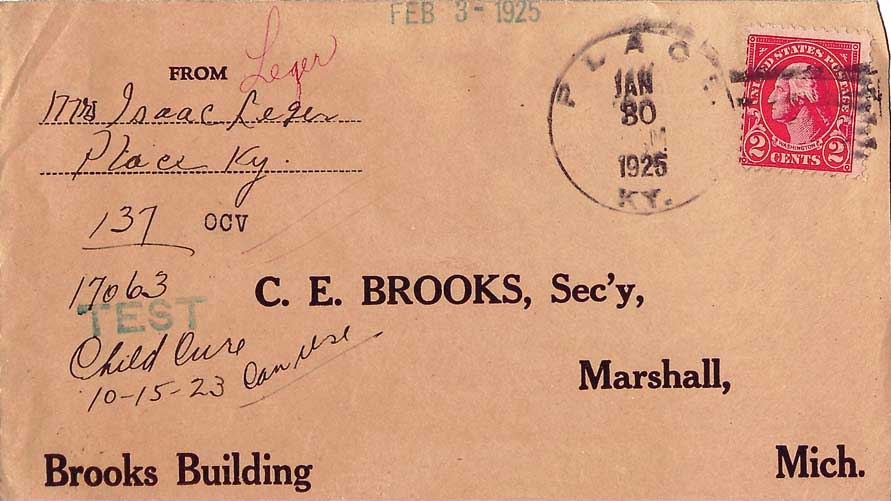 FEB 3 - 1925
Leger
FROM
Mrs Isaac Leger
Place Ky.
137 OCV
17063
TEST
Child Cure
10-15-23 Can Use
PLACE
JAN
30
M
1925
KY.
UNITED STATES POSTAGE
WASHINGTON
2 CENTS 2
C. E. BROOKS, Sec'y,
Marshall,
Brooks Building Mich.